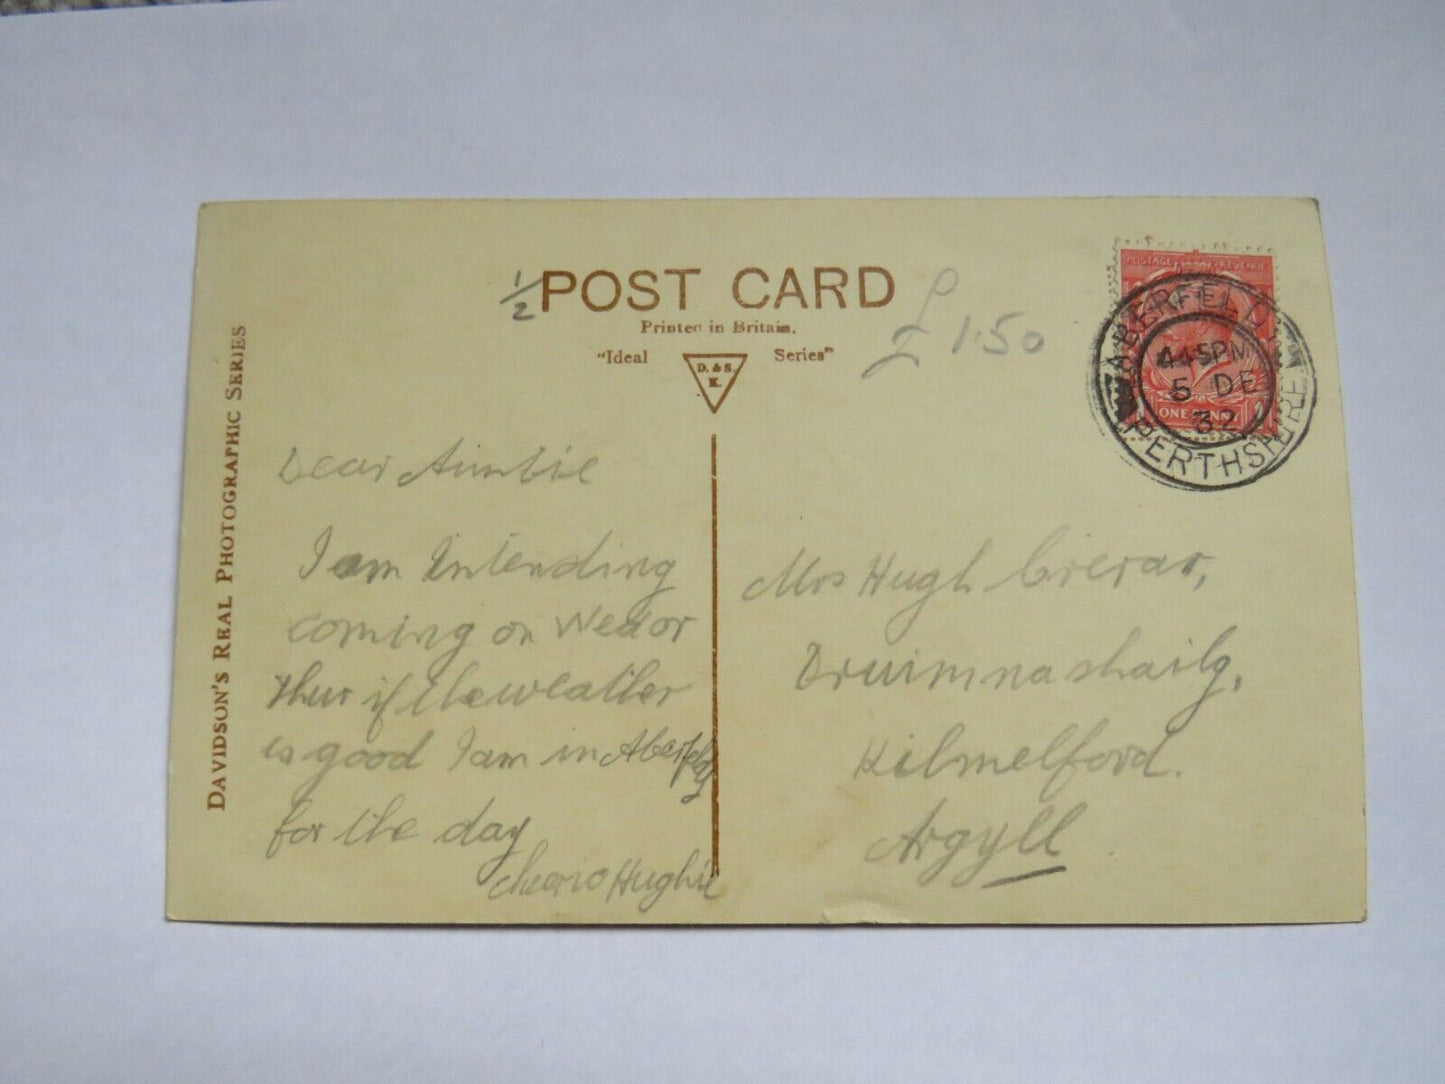 DAVIDSON'S REAL PHOTOGRAPHIC SERIES
1/2
POST CARD
Printed in Britain.
"Ideal Series"
D. & S.
K.
£1.50
POSTAGE REVENUE
ONE PENNY
ABERFELDY
4 45PM
5 DE
32
PERTHSHIRE
Dear Auntie
I am Intending
coming on Wed or
Thur if the weather
is good I am in Aberfeldy
for the day
cheerio Hughie
Mrs Hugh Crerar,
Druimnashailg,
Kilmelford.
Argyll